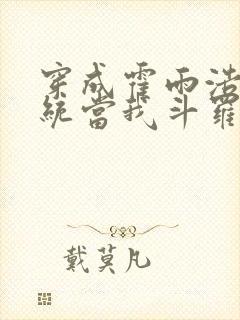 穿成霍雨浩
統當我斗羅
戴莫凡